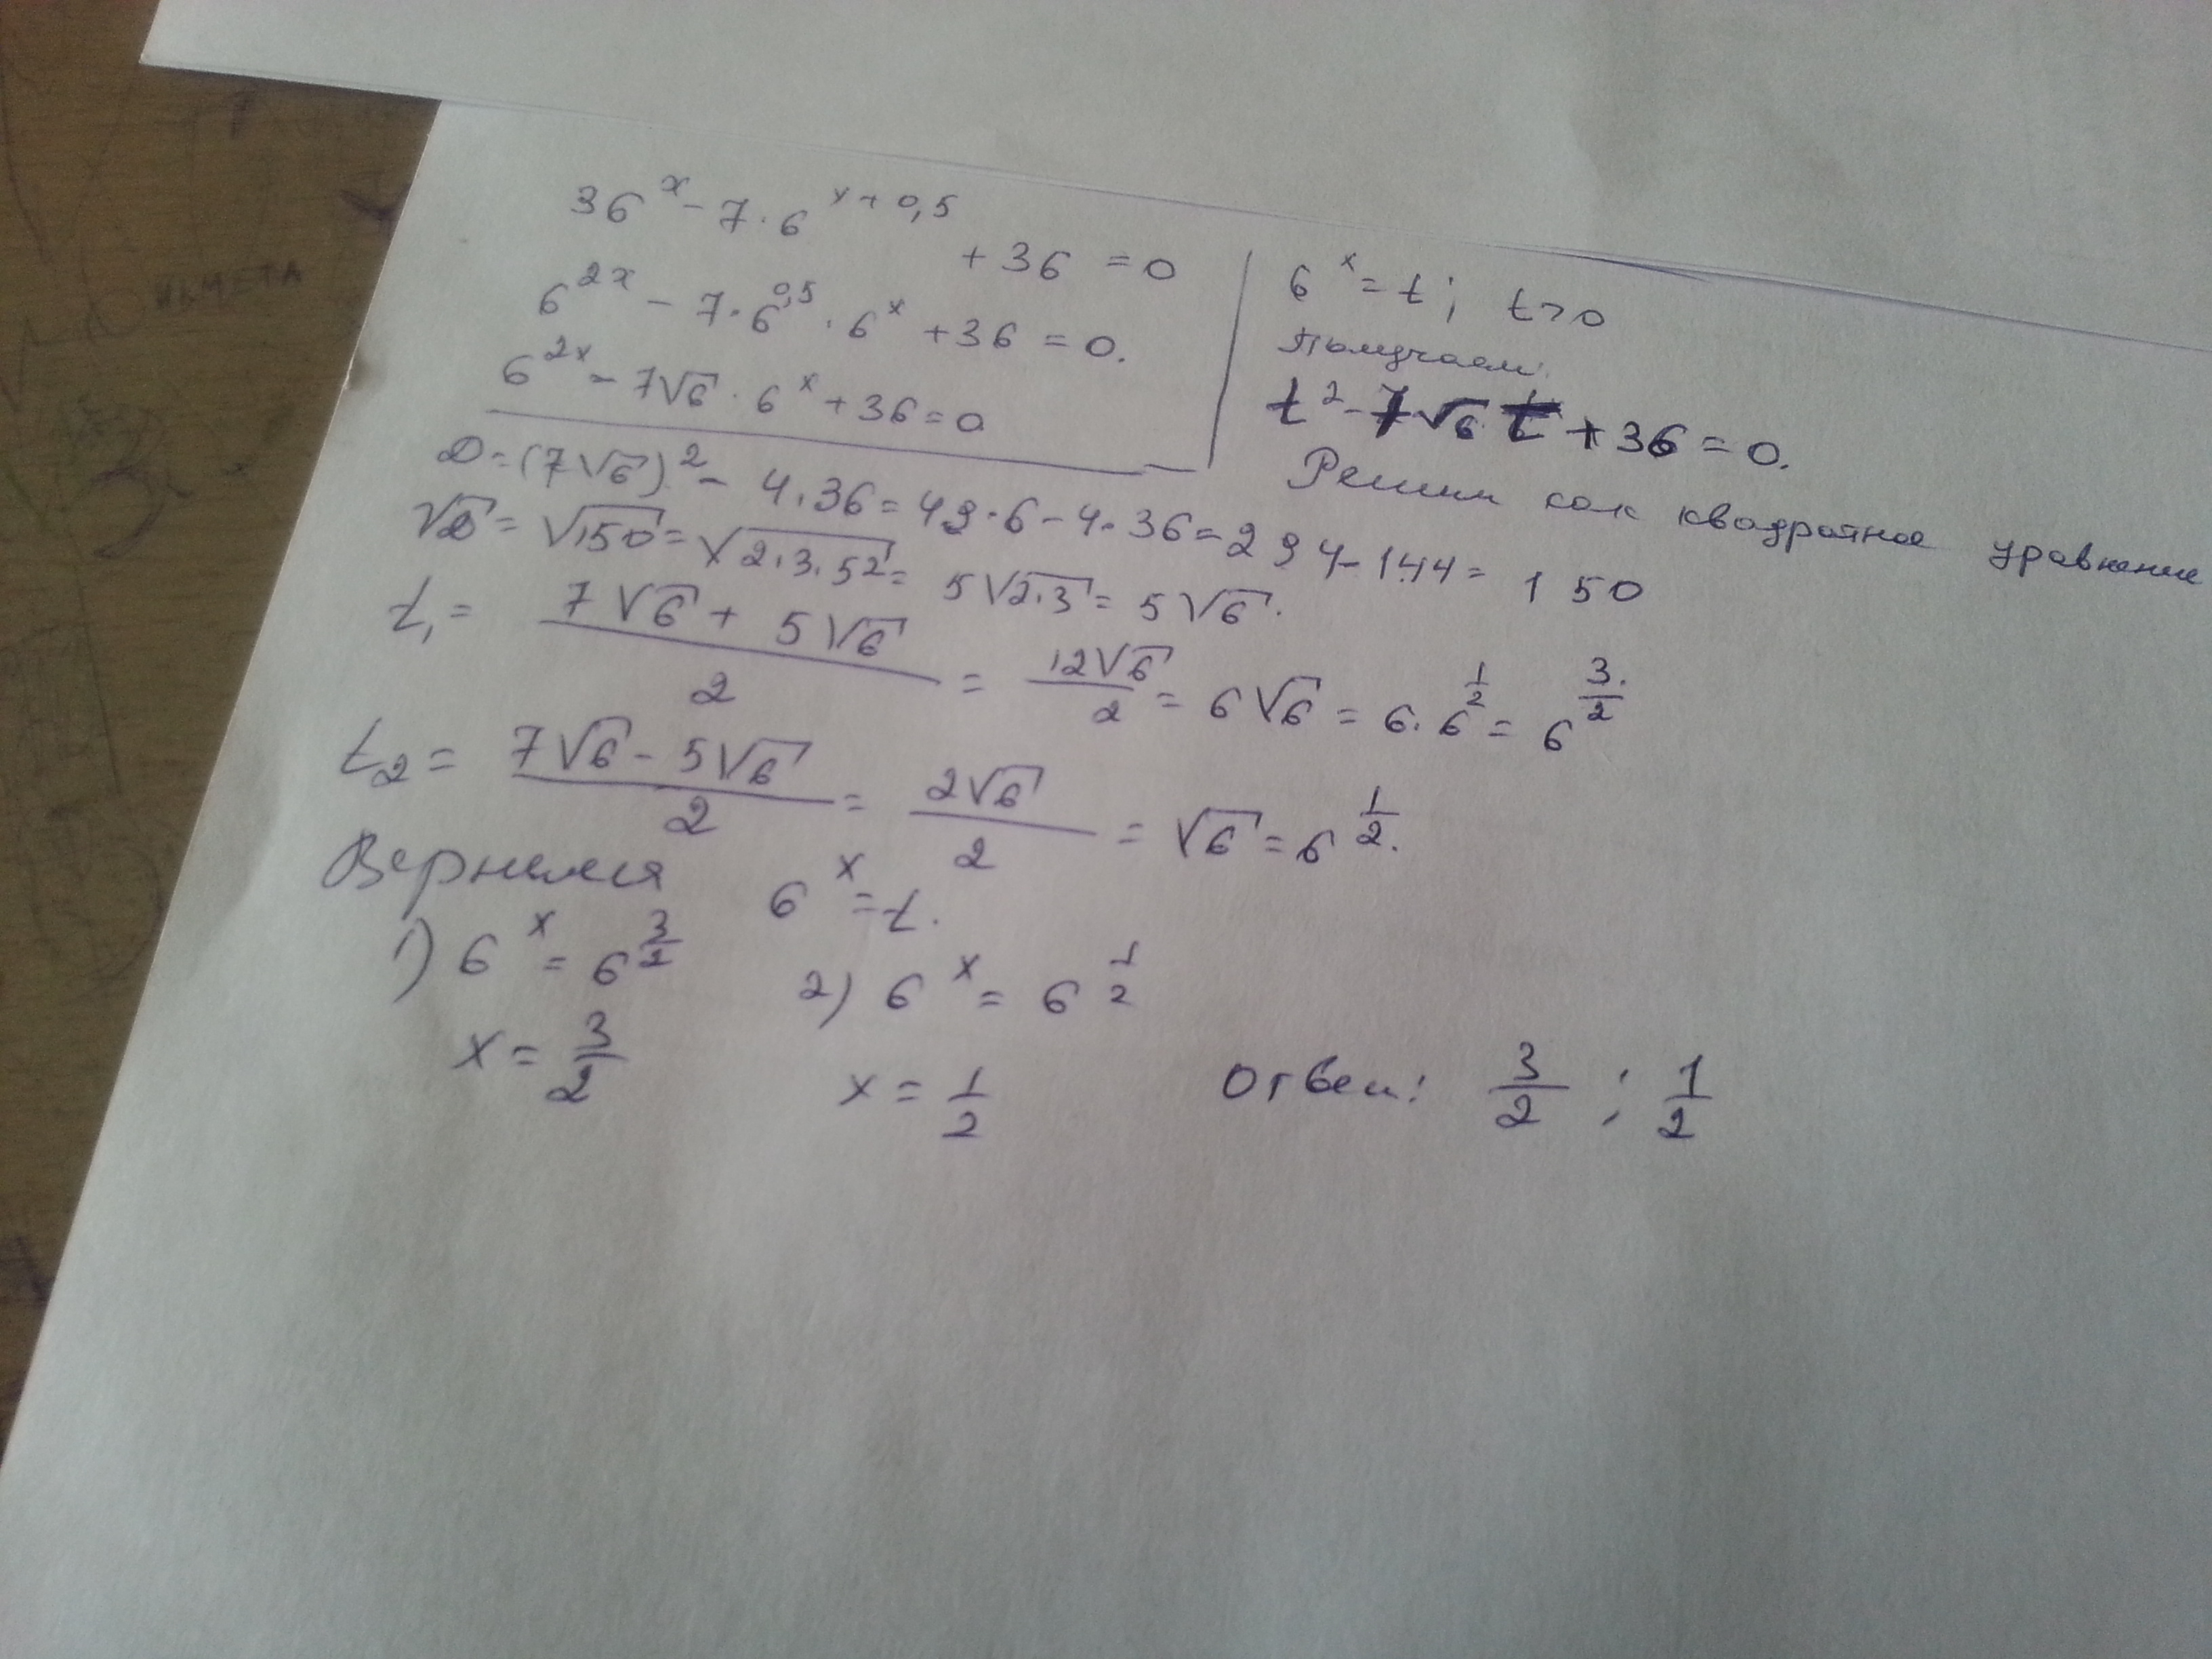 36^x - 7·6^(x+0,5) + 36 = 0
6^(2x) - 7·6^(0,5)·6^x + 36 = 0.
6^(2x) - 7√6·6^x + 36 = 0
6^x = t; t>0
Получаем:
t² - 7√6 t + 36 = 0.
Решим как квадратное уравнение
D = (7√6)² - 4·36 = 49·6 - 4·36 = 294 - 144 = 150
√D = √150 = √(2·3·5²) = 5√(2·3) = 5√6.
t₁ = (7√6 + 5√6)/2 = 12√6/2 = 6√6 = 6·6^(1/2) = 6^(3/2)
t₂ = (7√6 - 5√6)/2 = 2√6/2 = √6 = 6^(1/2).
Вернемся 6^x = t.
1) 6^x = 6^(3/2) 2) 6^x = 6^(1/2)
x = 3/2 x = 1/2 Ответ: 3/2 ; 1/2